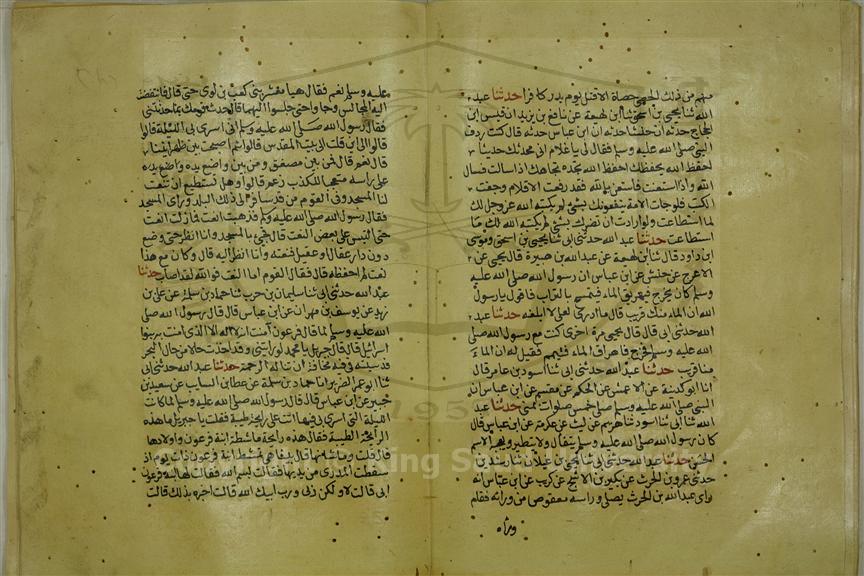 منهم من ذلك الحصى حصاة الا قتل يوم بدر كافرا حدثنا عبد
الله ثنا يحيى بن اسحق ثنا ابن لهيعة عن نافع بن يزيد ان قيس ابن
الحجاج حدثه ان حنشا حدثه ان ابن عباس حدثه قال كنت ردف
النبي صلى الله عليه وسلم فقال لي يا غلام اني محدثك حديثا
احفظ الله يحفظك احفظ الله تجده تجاهك اذا سالت فسال
الله واذا استعنت فاستعن بالله فقد رفعت الاقلام وجفت
الكتب فلو جات الامة ينفعونك بشي لم يكتبه الله عز وجل لك
لما استطاعت ولو ارادت ان تضرك بشي لم يكتبه الله لك ما
استطاعت حدثنا عبد الله حدثني ابي ثنا يحيى بن اسحق وموسى
ابن داود قال ثنا ابن لهيعة عن عبد الله بن هبيرة قال يحيى عن
الاعرج عن حنش عن ابن عباس ان رسول الله صلى الله عليه
وسلم كان يخرج فيهريق الماء فيتمسح بالتراب فاقول يا رسول
الله ان الماء منك قريب قال ما ادري لعلي لا ابلغه حدثنا عبد
الله حدثني ابي قال قال يحيى مرة اخرى كنت مع رسول الله صلى
الله عليه وسلم فخرج فاهراق الماء فتيمم فقيل له ان الماء
منا قريب حدثنا عبد الله حدثني ابي ثنا اسود بن عامر قال
انا ابو كدينة عن الاعمش عن الحكم عن مقسم عن ابن عباس ان
النبي صلى الله عليه وسلم صلى خمس صلوات بمنى حدثنا عبد
الله ثنا ابي ثنا اسود ثنا هريم عن ليث عن عكرمة عن ابن عباس قال
كان رسول الله صلى الله عليه وسلم يتفال ولا يتطير ويعجبه الاسم
الحسن حدثنا عبد الله حدثني ابي ثنا يحيى بن غيلان ثنا رشدين بن
حدثني عمرو بن الحرث عن بكير بن الاشج عن كريب عن ابن عباس انه
راى عبد الله بن الحرث يصلي وراسه معقوص من ورائه فقام
وراه
عليه وسلم نعم فقال هيا معشر بني كعب بن لوي حتى قال فانتفضت
اليه المجالس وجاوا حتى جلسوا اليهما قال حدث قومك بما حدثتني
فقال رسول الله صلى الله عليه وسلم اني اسري بي الليلة قالوا
قالوا الى اين قلت الى بيت المقدس قالوا ثم اصبحت بين ظهرانينا
قال نعم قال فمن بين مصفق ومن بين واضع يده واضع يده
على راسه متعجبا للكذب زعم قالوا وهل تستطيع ان تنعت
لنا المسجد وفي القوم من قد سافر الى ذلك البلد وراى المسجد
فقال رسول الله صلى الله عليه وسلم فذهبت انعت فما زلت انعت
حتى التبس علي بعض النعت قال فجيء بالمسجد وانا انظر حتى وضع
دون دار عقال او عقيل فنعته وانا انظر اليه قال وكان مع هذا
نعت لم احفظه قال فقال القوم اما النعت فوالله لقد اصاب حدثنا
عبد الله حدثني ابي ثنا سليمان بن حرب ثنا حماد بن سلمة عن علي بن
زيد عن يوسف بن مهران عن ابن عباس قال قال رسول الله صلى
الله عليه وسلم لما قال فرعون امنت انه لا اله الا الذي امنت به بنوا
اسرائيل قال قال جبريل يا محمد لو رايتني وقد اخذت حالا من حال البحر
فدسيته في فيه مخافة ان تناله الرحمة حدثنا عبد الله حدثني ابي
ثنا ابو عمر الضرير انا حماد بن سلمة عن عطا بن السايب عن سعيد بن
جبير عن ابن عباس قال قال رسول الله صلى الله عليه وسلم لما كانت
الليلة التي اسري بي فيها اتت علي رايحة طيبة فقلت يا جبريل ما هذه
الرايحة الطيبة فقال هذه رايحة ماشطة ابنة فرعون واولادها
قال قلت وما شانها قال بينا هي تمشط ابنة فرعون ذات يوم اذ
سقطت المدرى من يديها فقالت بسم الله فقالت لها ابنة فرعون
ابي قالت لا ولكن ربي ورب ابيك الله قالت اخبره بذلك قالت